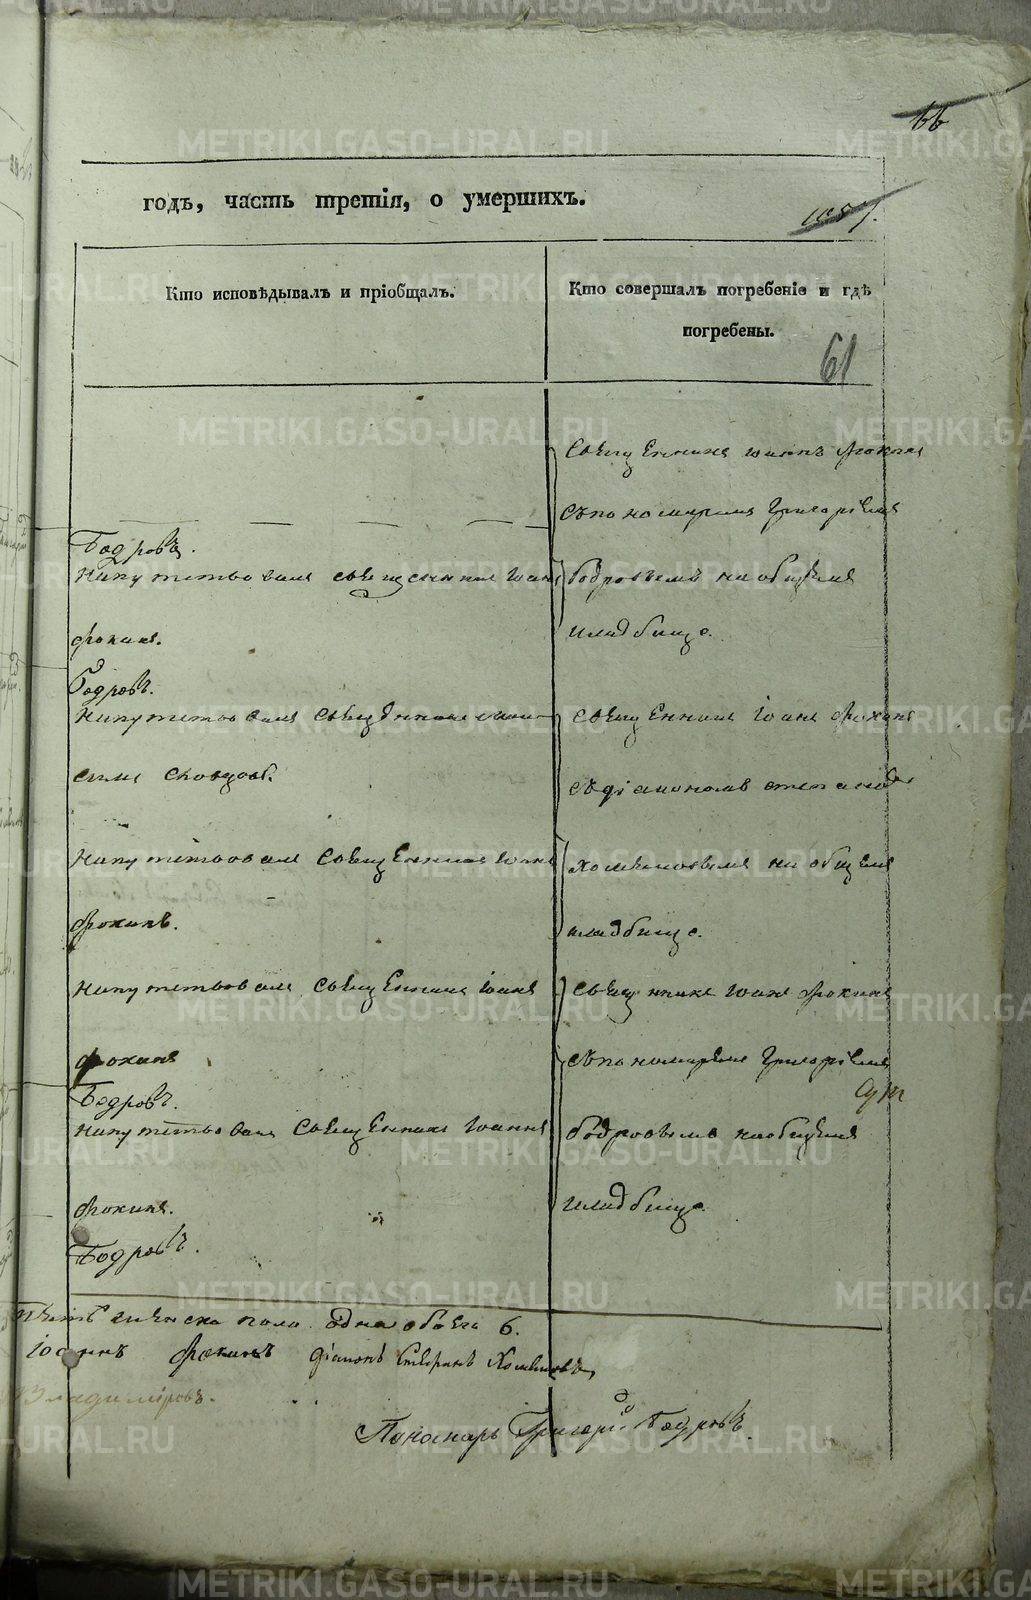 66
годъ, часть третія, о умершихъ.
Кто исповѣдывалъ и пріобщалъ.
Кто совершалъ погребеніе и гдѣ
погребены.
61
Священникъ Іоаннъ Фокинъ
съ пономаремъ Григоріемъ
Бодровъ.
Напутствовалъ священникъ Іоаннъ
Бодровымъ на общемъ
Фокинъ.
кладбище.
Бодровъ.
Напутствовалъ священникъ
Священникъ Іоаннъ Фокинъ
съ діакономъ
Напутствовалъ священникъ Іоаннъ
на общемъ
Фокинъ.
кладбище.
Напутствовалъ священникъ Іоаннъ
Священникъ Іоаннъ Фокинъ
Фокинъ
съ пономаремъ Григоріемъ
Бодровъ.
Напутствовалъ священникъ Іоаннъ
Бодровымъ на общемъ
Фокинъ.
кладбище.
Бодровъ.
пола одна обоего 6.
Іоаннъ Фокинъ діаконъ
Владиміровъ.
Пономарь Григорій Бодровъ.
METRIKI.GASO-URAL.RU